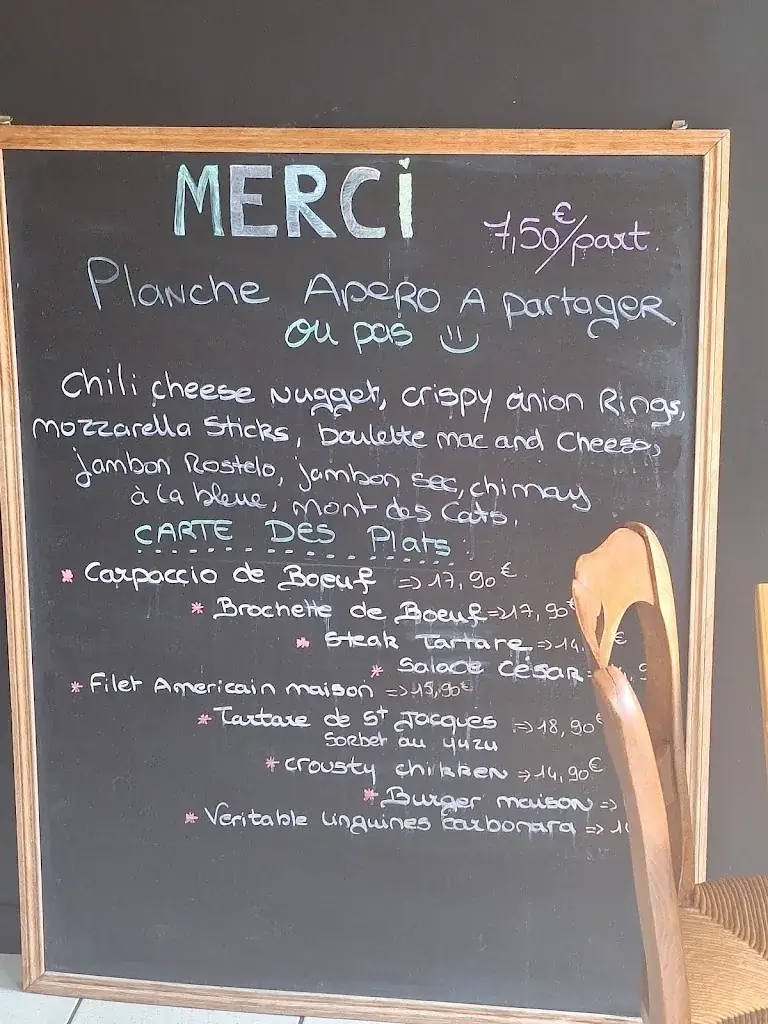 MERCi
7,50€/part.
Planche Apero A partager
ou pas
Chili cheese nugget, crispy onion Rings,
mozzarella Sticks, boulette mac and Cheese,
jambon Rostelo, jambon sec, chimay
à la bleue, mont des Cats.
CARTE DES Plats
* Carpaccio de Boeuf => 17,90€
* Brochette de Boeuf => 17,90€
* Steak Tartare => 14, €
* Salade César
* Filet Americain maison => 15,90€
* Tartare de St Jacques => 18,90€
Sorbet au yuzu
* crousty chikken => 14,90€
* Burger maison =>
* Veritable linguines carbonara =>